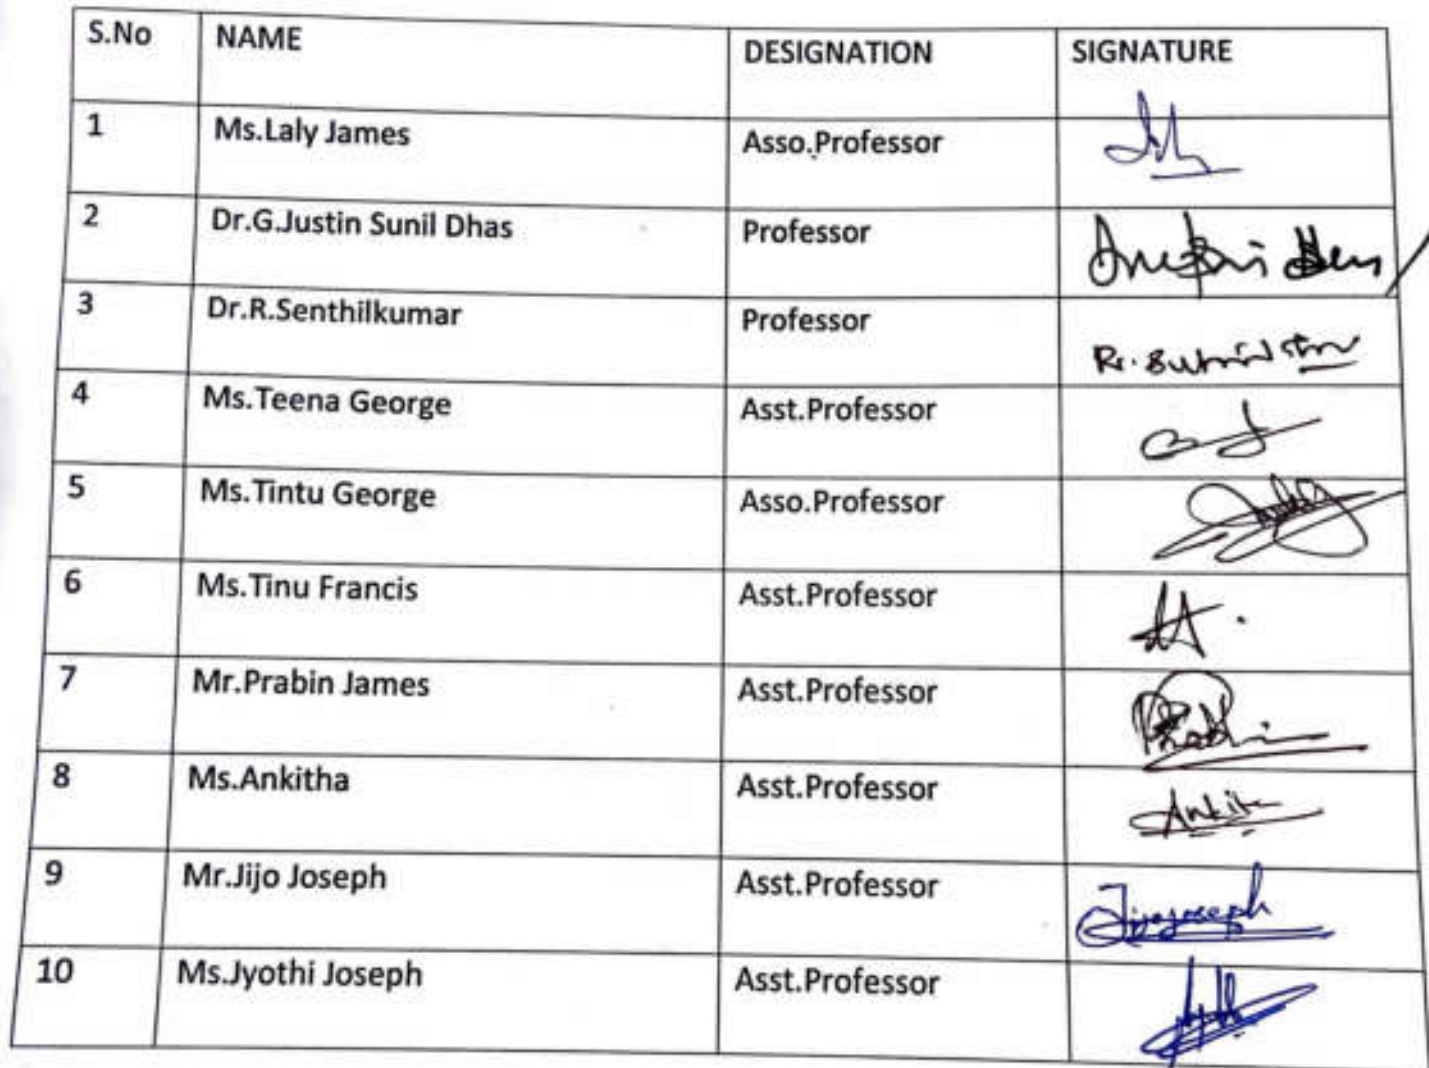 S.No NAME DESIGNATION SIGNATURE
1 Ms.Laly James Asso.Professor
2 Dr.G.Justin Sunil Dhas Professor
3 Dr.R.Senthilkumar Professor
4 Ms.Teena George Asst.Professor
5 Ms.Tintu George Asso.Professor
6 Ms.Tinu Francis Asst.Professor
7 Mr.Prabin James Asst.Professor
8 Ms.Ankitha Asst.Professor
9 Mr.Jijo Joseph Asst.Professor Jijojoseph
10 Ms.Jyothi Joseph Asst.Professor